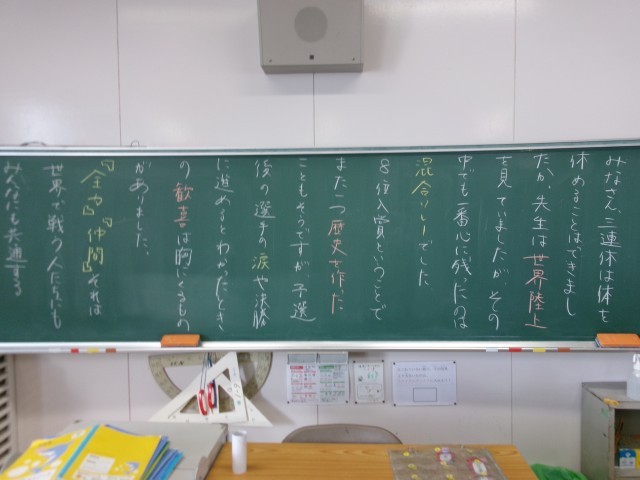 みなさん、三連休は体を
休めることはできまし
たか。先生は世界陸上
を見ていましたが、その
中でも一番心に残ったのは
混合リレーでした
8位入賞ということで
また一つ歴史を作った
こともそうですが、予選
後の選手の涙や決勝
に進めるとわかったとき
の歓喜は胸にくるもの
がありました、
『全力』『仲間』それは
世界で戦う人だちにも
みんなにも共通する